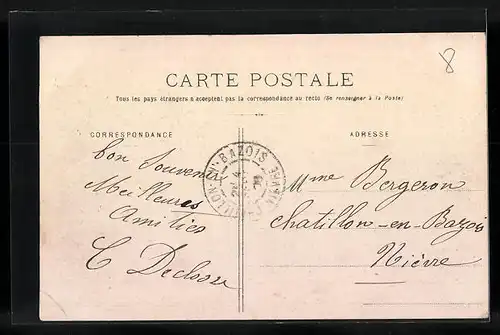 8
CARTE POSTALE
Tous les pays étrangers n'acceptent pas la correspondance au recto (Se renseigner à la Poste)
CORRESPONDANCE
ADRESSE
bon Souvenir
Meilleures
Amitiés
C
Mme Bergeron
Chatillon-en-Bazois
Nièvre
CHATILLON-EN-BAZOIS
NIEVRE